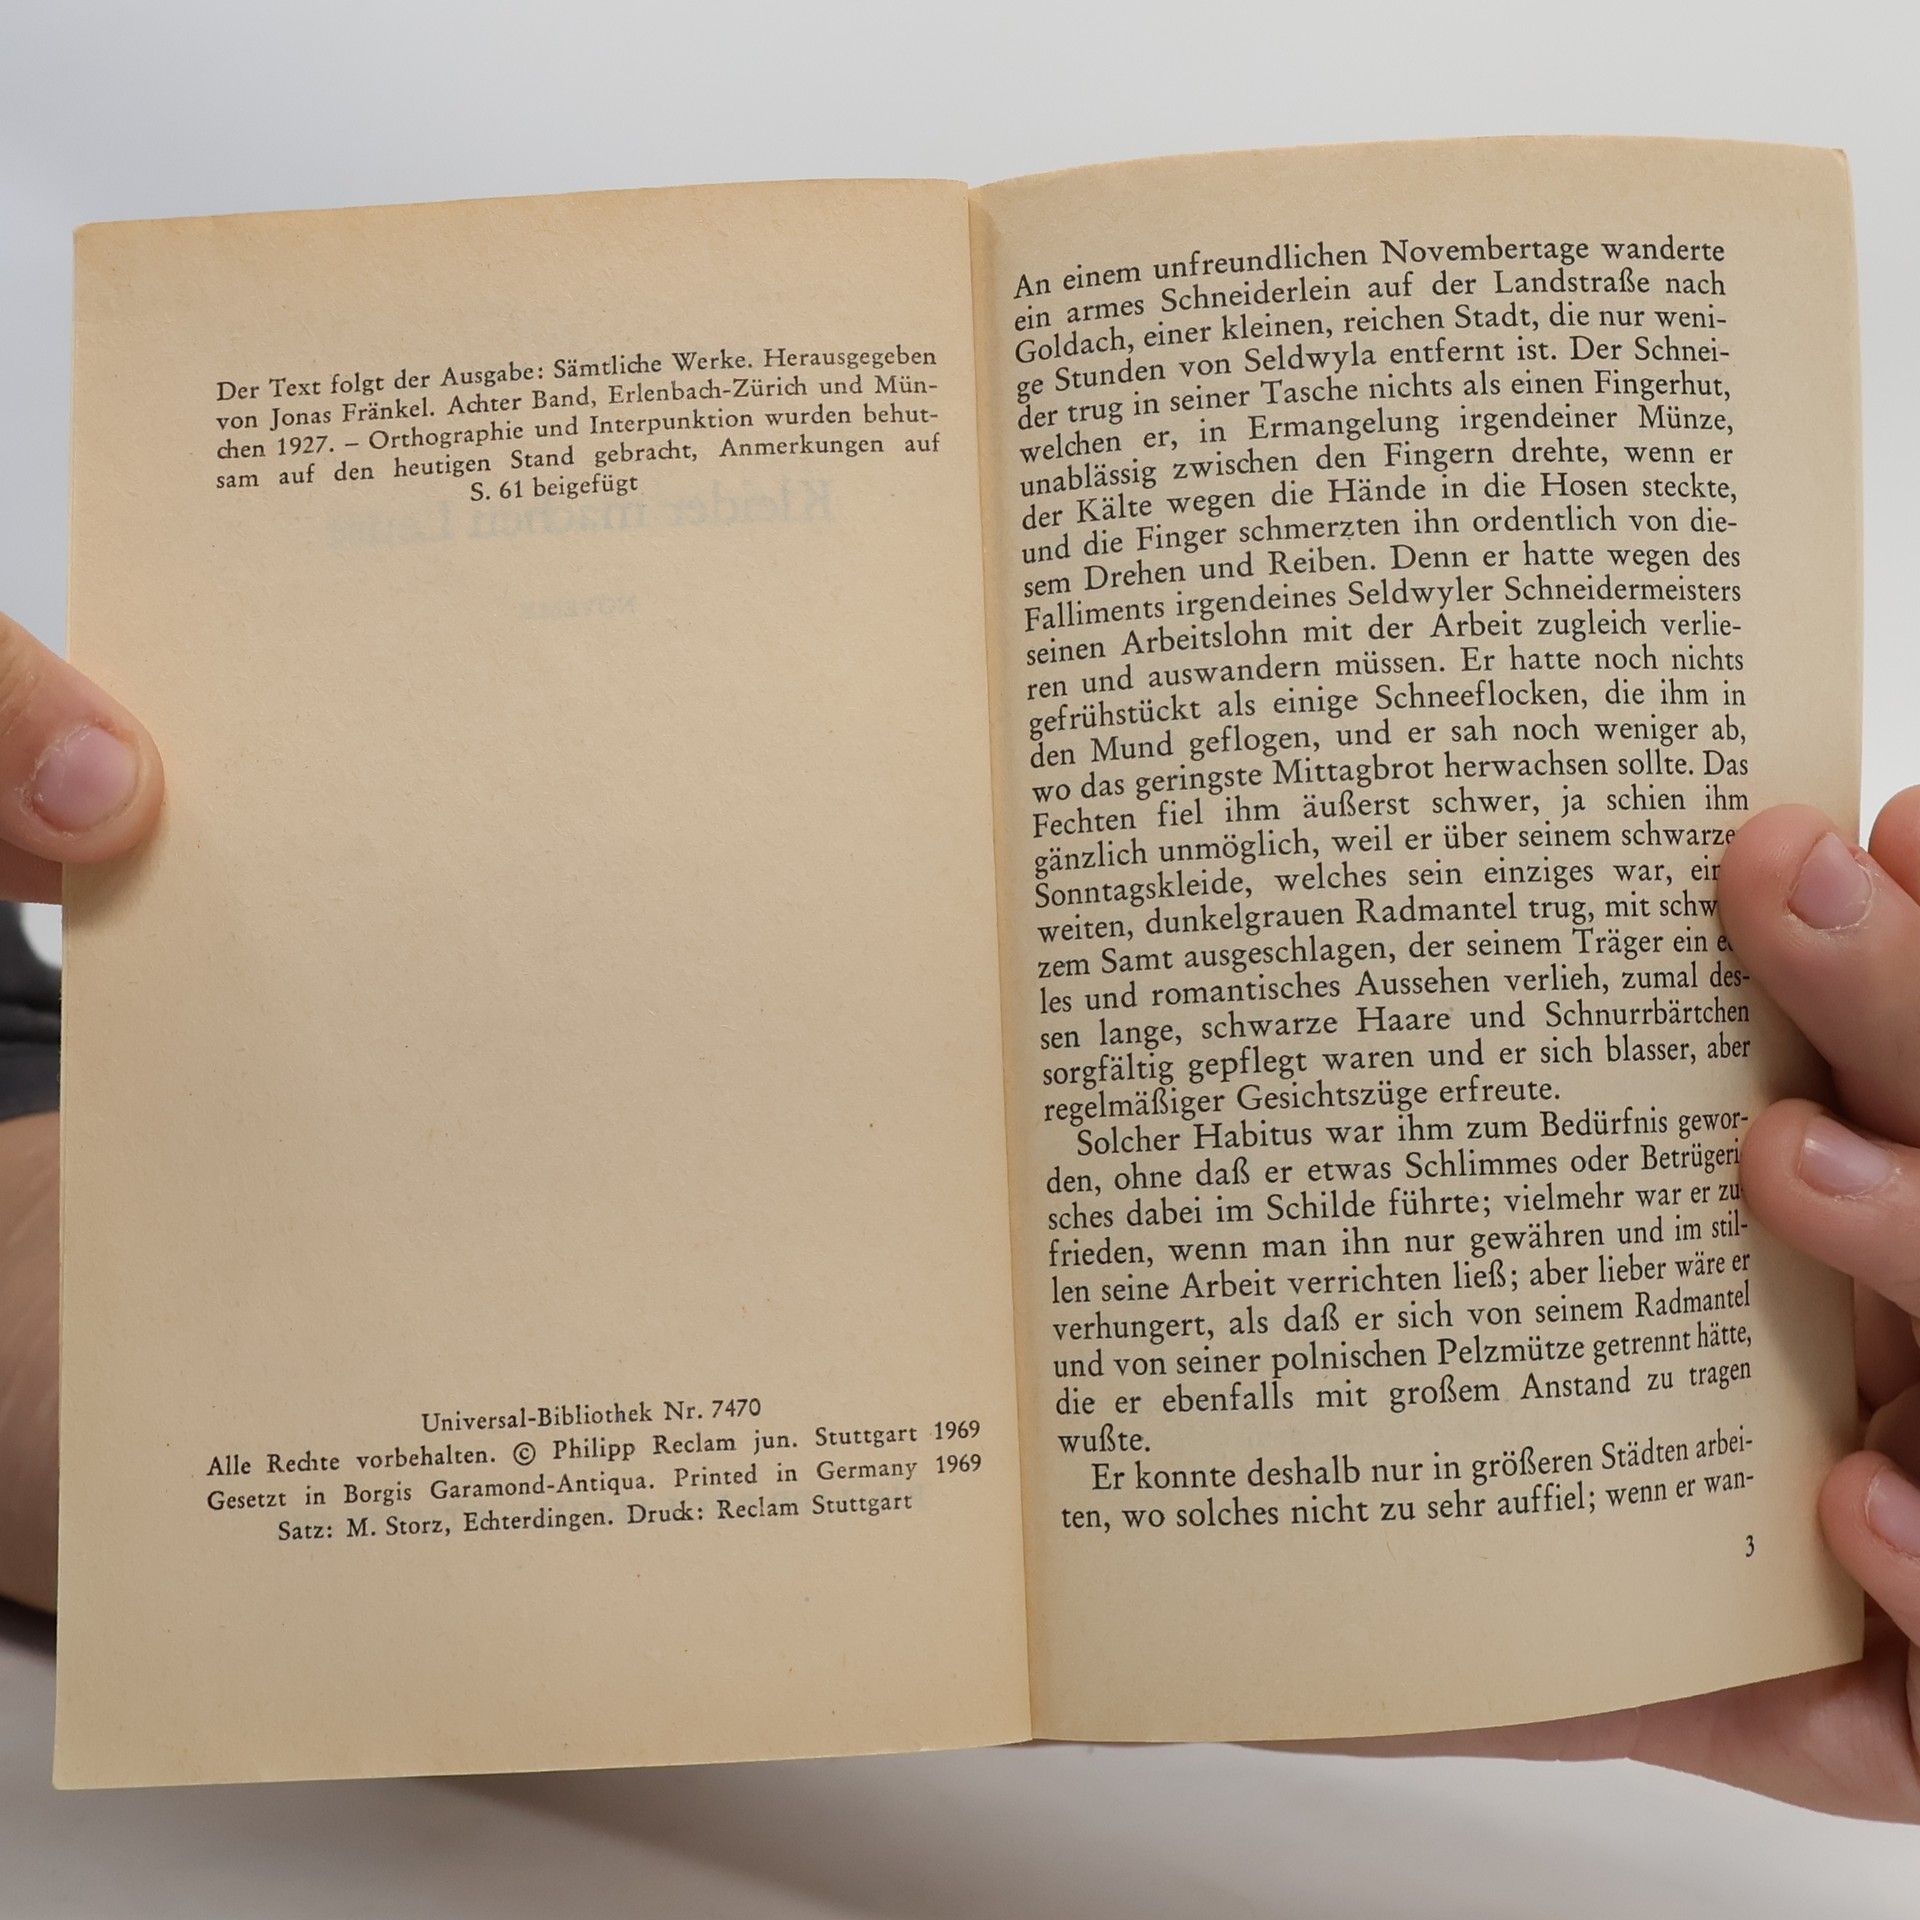 Der Text folgt der Ausgabe: Sämtliche Werke. Herausgegeben
von Jonas Fränkel. Achter Band, Erlenbach-Zürich und Mün-
chen 1927. – Orthographie und Interpunktion wurden behut-
sam auf den heutigen Stand gebracht, Anmerkungen auf
S. 61 beigefügt
Universal-Bibliothek Nr. 7470
Alle Rechte vorbehalten. © Philipp Reclam jun. Stuttgart 1969
Gesetzt in Borgis Garamond-Antiqua. Printed in Germany 1969
Satz: M. Storz, Echterdingen. Druck: Reclam Stuttgart
An einem unfreundlichen Novembertage wanderte
ein armes Schneiderlein auf der Landstraße nach
Goldach, einer kleinen, reichen Stadt, die nur weni-
ge Stunden von Seldwyla entfernt ist. Der Schnei-
der trug in seiner Tasche nichts als einen Fingerhut,
welchen er, in Ermangelung irgendeiner Münze,
unablässig zwischen den Fingern drehte, wenn er
der Kälte wegen die Hände in die Hosen steckte,
und die Finger schmerzten ihn ordentlich von die-
sem Drehen und Reiben. Denn er hatte wegen des
Falliments irgendeines Seldwyler Schneidermeisters
seinen Arbeitslohn mit der Arbeit zugleich verlie-
ren und auswandern müssen. Er hatte noch nichts
gefrühstückt als einige Schneeflocken, die ihm in
den Mund geflogen, und er sah noch weniger ab,
wo das geringste Mittagbrot herwachsen sollte. Das
Fechten fiel ihm äußerst schwer, ja schien ihm
gänzlich unmöglich, weil er über seinem schwarze
Sonntagskleide, welches sein einziges war,
weiten, dunkelgrauen Radmantel trug, mit schw
zem Samt ausgeschlagen, der seinem Träger ein
les und romantisches Aussehen verlieh, zumal des-
sen lange, schwarze Haare und Schnurrbärtchen
sorgfältig gepflegt waren und er sich blasser, aber
regelmäßiger Gesichtszüge erfreute.
Solcher Habitus war ihm zum Bedürfnis gewor-
den, ohne daß er etwas Schlimmes oder Betrügeri
sches dabei im Schilde führte; vielmehr war er zu-
frieden, wenn man ihn nur gewähren und im stil-
len seine Arbeit verrichten ließ; aber lieber wäre er
verhungert, als daß er sich von seinem Radmantel
und von seiner polnischen Pelzmütze getrennt hätte,
die er ebenfalls mit großem Anstand zu tragen
wußte.
Er konnte deshalb nur in größeren Städten arbei-
ten, wo solches nicht zu sehr auffiel; wenn er wan-
3